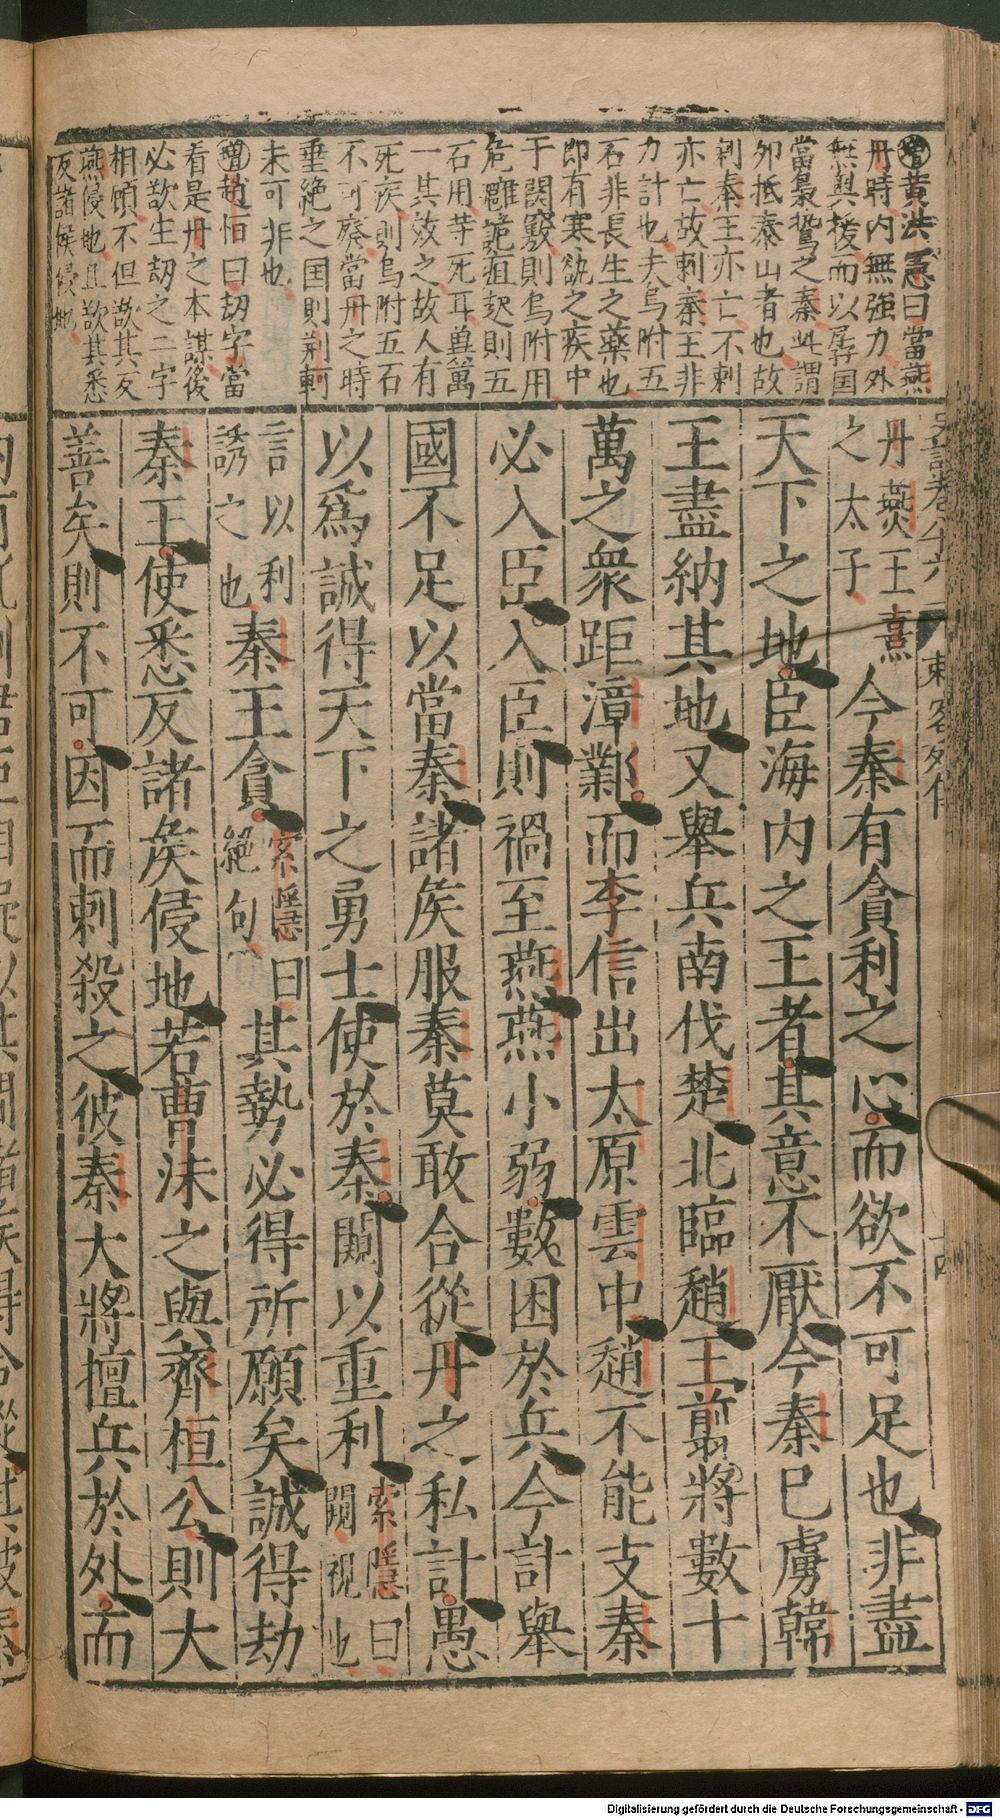 ㊞黃洪憲曰當燕
丹時内無強力外
無與援而以孱国
當梟鷙之秦此謂
夘抵泰山者也故
刺秦王亦亡不刺
亦亡故刺秦王非
力計也夫烏附五
石非長生之藥也
即有寒欬之疾中
于関竅則烏附用
危癰詭疽起則五
石用等死耳兽萬
一其效之故人有
死疾則烏附五石
不可廢當丹之時
垂絶之国則荆軻
未可非也
趙恒曰刼字當
看是丹之本謀後
必欲生刼之二字
相傾不但欲其反
燕侵地且欲其悉
反諸侯侵地
史記卷八十六
刺客列傳
十四
丹燕王熹
之太子
今秦有貪利之心而欲不可足也非盡
天下之地臣海内之王者其意不厭今秦已虜韓
王盡納其地又舉兵南伐楚北臨趙王翦將數十
萬之衆距漳鄴而李信出太原雲中趙不能支秦
必入臣入臣則禍至燕燕小弱數困於兵今計舉
國不足以當秦諸侯服秦莫敢合從丹之私計愚
以爲誠得天下之勇士使於秦闚以重利
索隱曰
闚視也
言以利
誘之也
秦王貪
索隱曰
絶句
其勢必得所願矣誠得劫
秦王使悉反諸侯侵地若曹沬之與齊桓公則大
善矣則不可因而刺殺之彼秦大將擅兵於外而
Digitalisierung gefördert durch die Deutsche Forschungsgemeinschaft - DFG